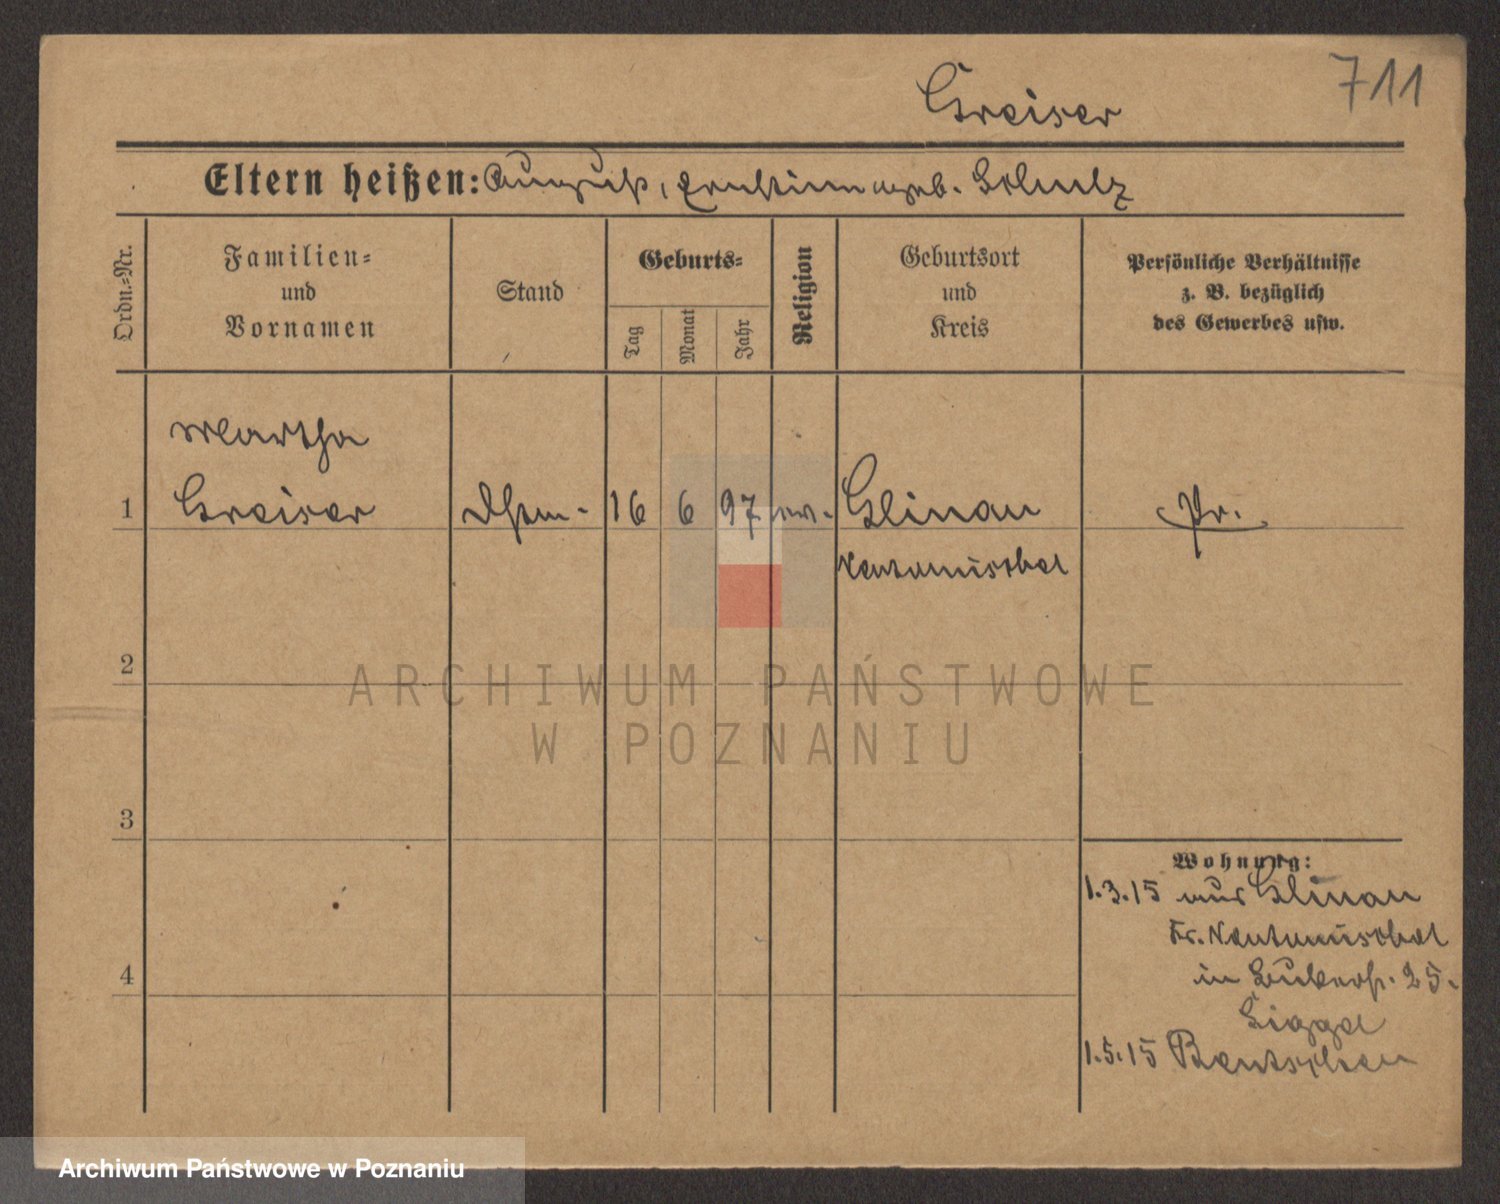 711
Greiser
Eltern heißen: August, Ernstine geb. Schulz
Ordn.-Nr.
Familien-
und
Vornamen
Stand
Geburts-
Tag
Monat
Jahr
Religion
Geburtsort
und
Kreis
Persönliche Verhältnisse
z. B. bezüglich
des Gewerbes usw.
Martha
1 Greiser 16 6 97 ev. Glinau Pr.
Neutomischel
2
3
4
Wohnung:
1.3.15 aus Glinau
Kr. Neutomischel
in 25.
1.5.15 Bentschen
ARCHIWUM PAŃSTWOWE
W POZNANIU
Archiwum Państwowe w Poznaniu